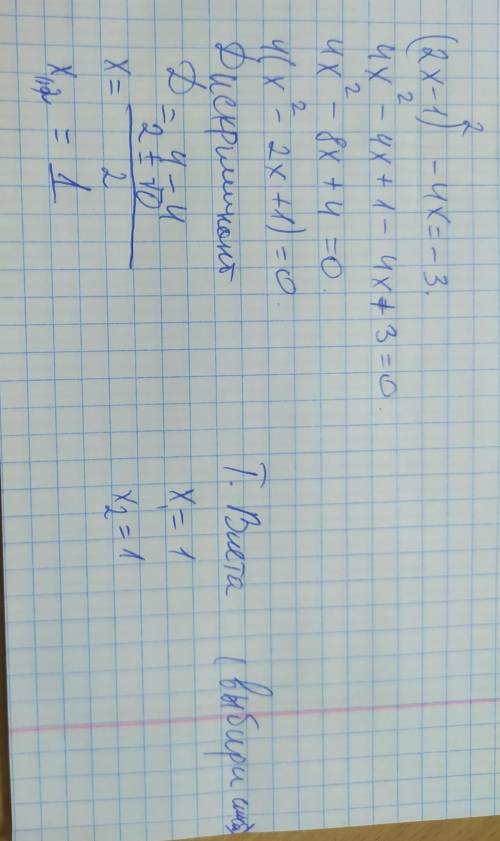 (2x-1)² - 4x = -3.
4x² - 4x + 1 - 4x + 3 = 0.
4x² - 8x + 4 = 0.
4(x² - 2x + 1) = 0.
Дискриминант
D = 4 - 4
x = (2 ± √0) / 2
x₁,₂ = 1
Т. Виета (выбири
x₁ = 1
x₂ = 1